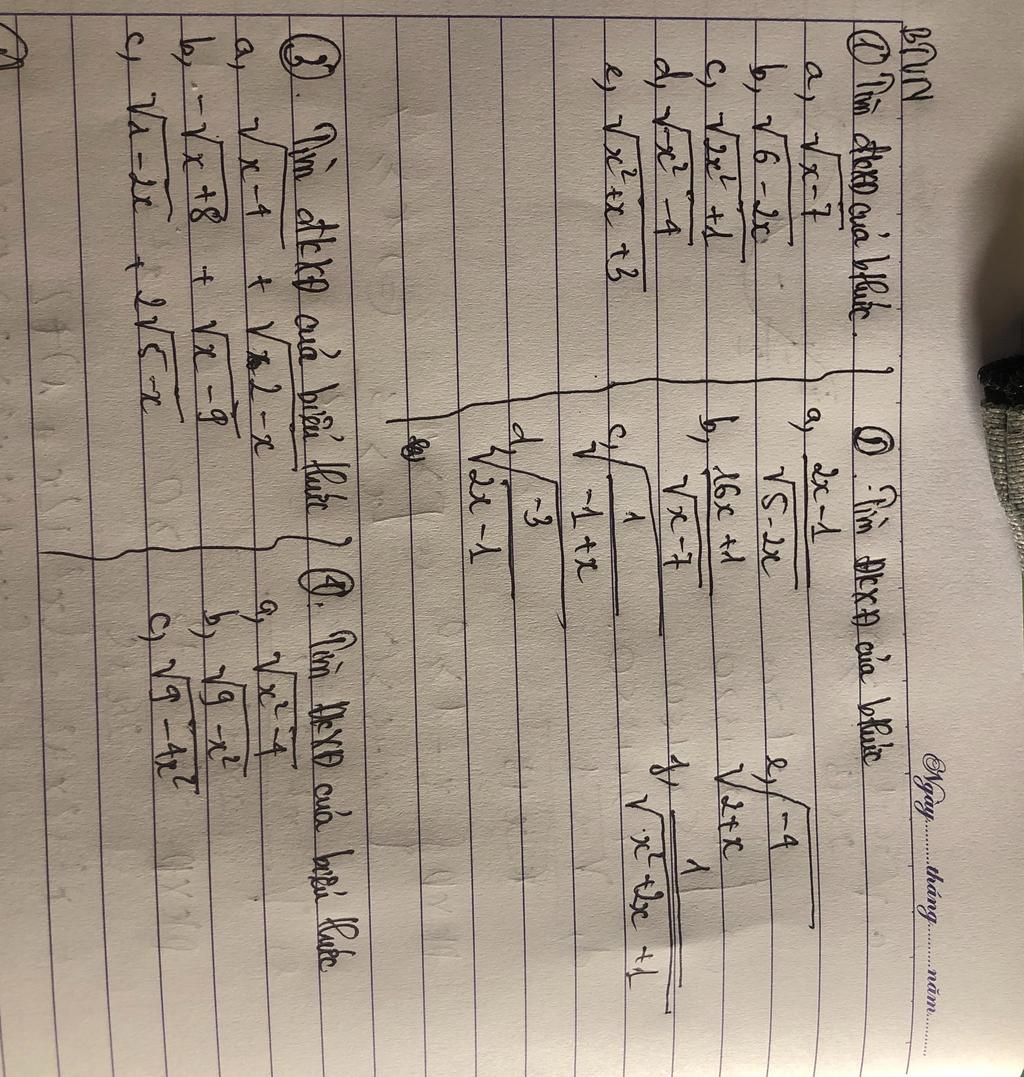 Ngày..........tháng..........năm..........
BTVN
① Tìm đkxđ của bthức.
a, √x-7
b, √6-2x
c, √2x²+1
d, √-x²-4
e, √x²+x+3
① Tìm ĐKXĐ của bthức
a, 2x-1 / √5-2x
b, 16x+1 / √x-7
c, √1 / -1+x
d, √-3 / 2x-1
e, √-4 / 2+x
f, 1 / √x²+2x+1
③. Tìm đkxđ của biểu thức
a, √x-4 + √2-x
b, -√x+8 + √x-9
c, √1-2x + 2√5-x
④. Tìm ĐKXĐ của biểu thức
a, √x²-4
b, √9-x²
c, √9-4x²